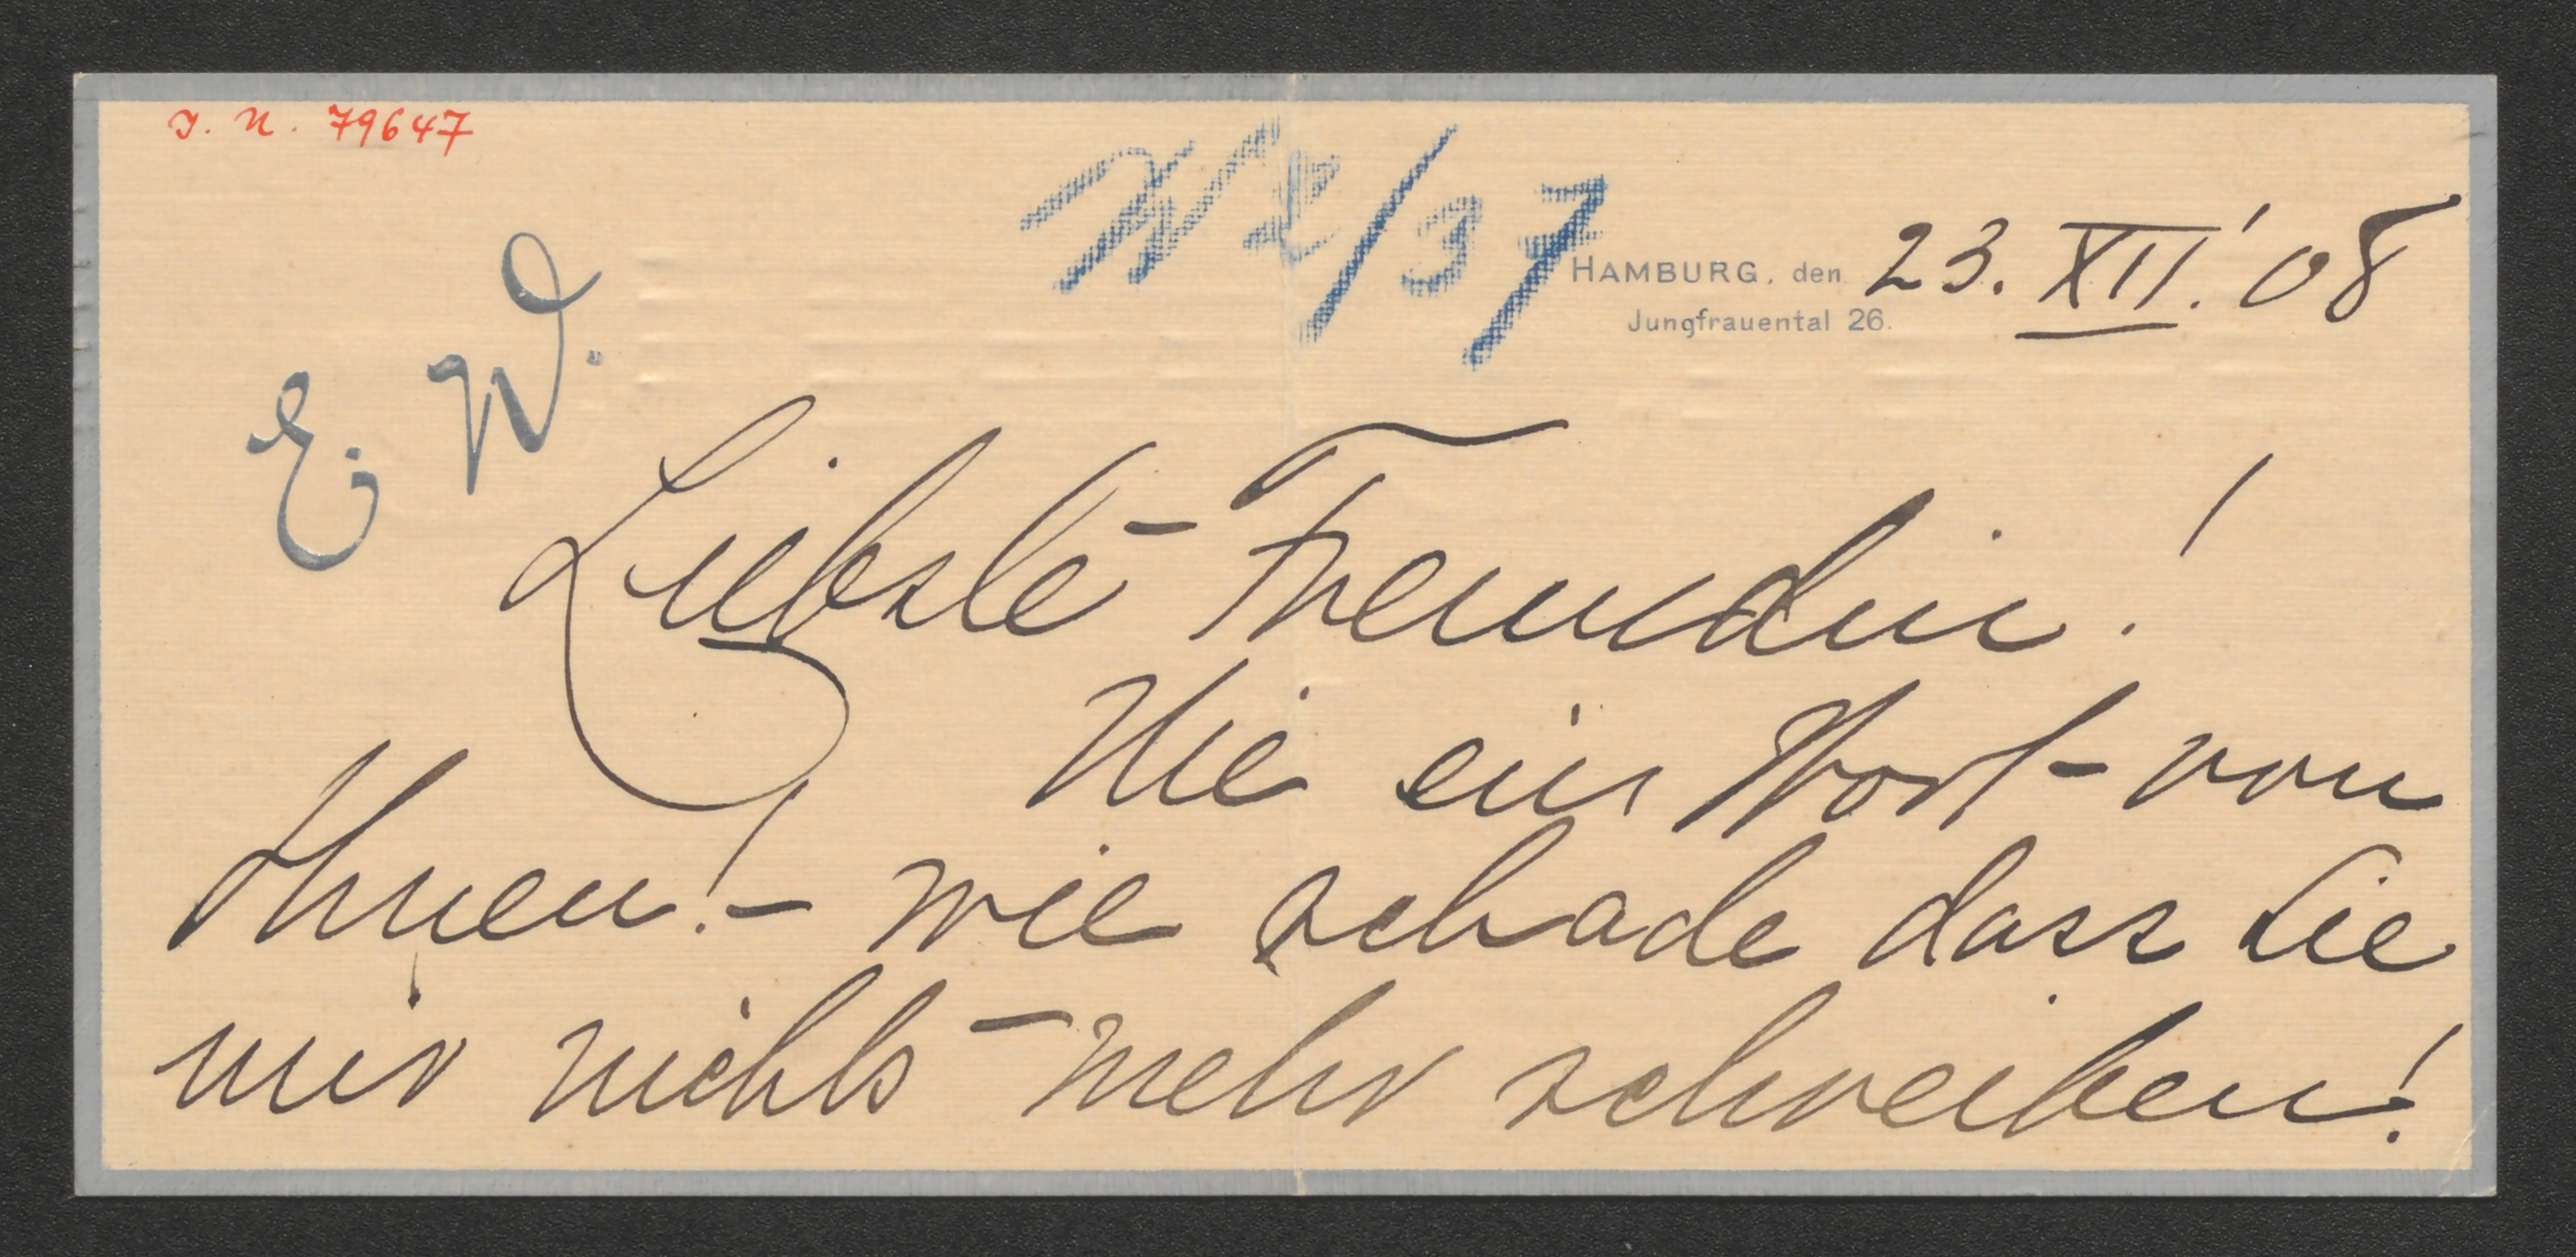 J. N. 79647
W2/37
HAMBURG, den 23. XII.' 08
Jungfrauental 26.
E. W.
Liebste Freundin!
Nie ein Wort von
Ihnen! – wie schade dass Sie
mir nichts mehr schreiben!